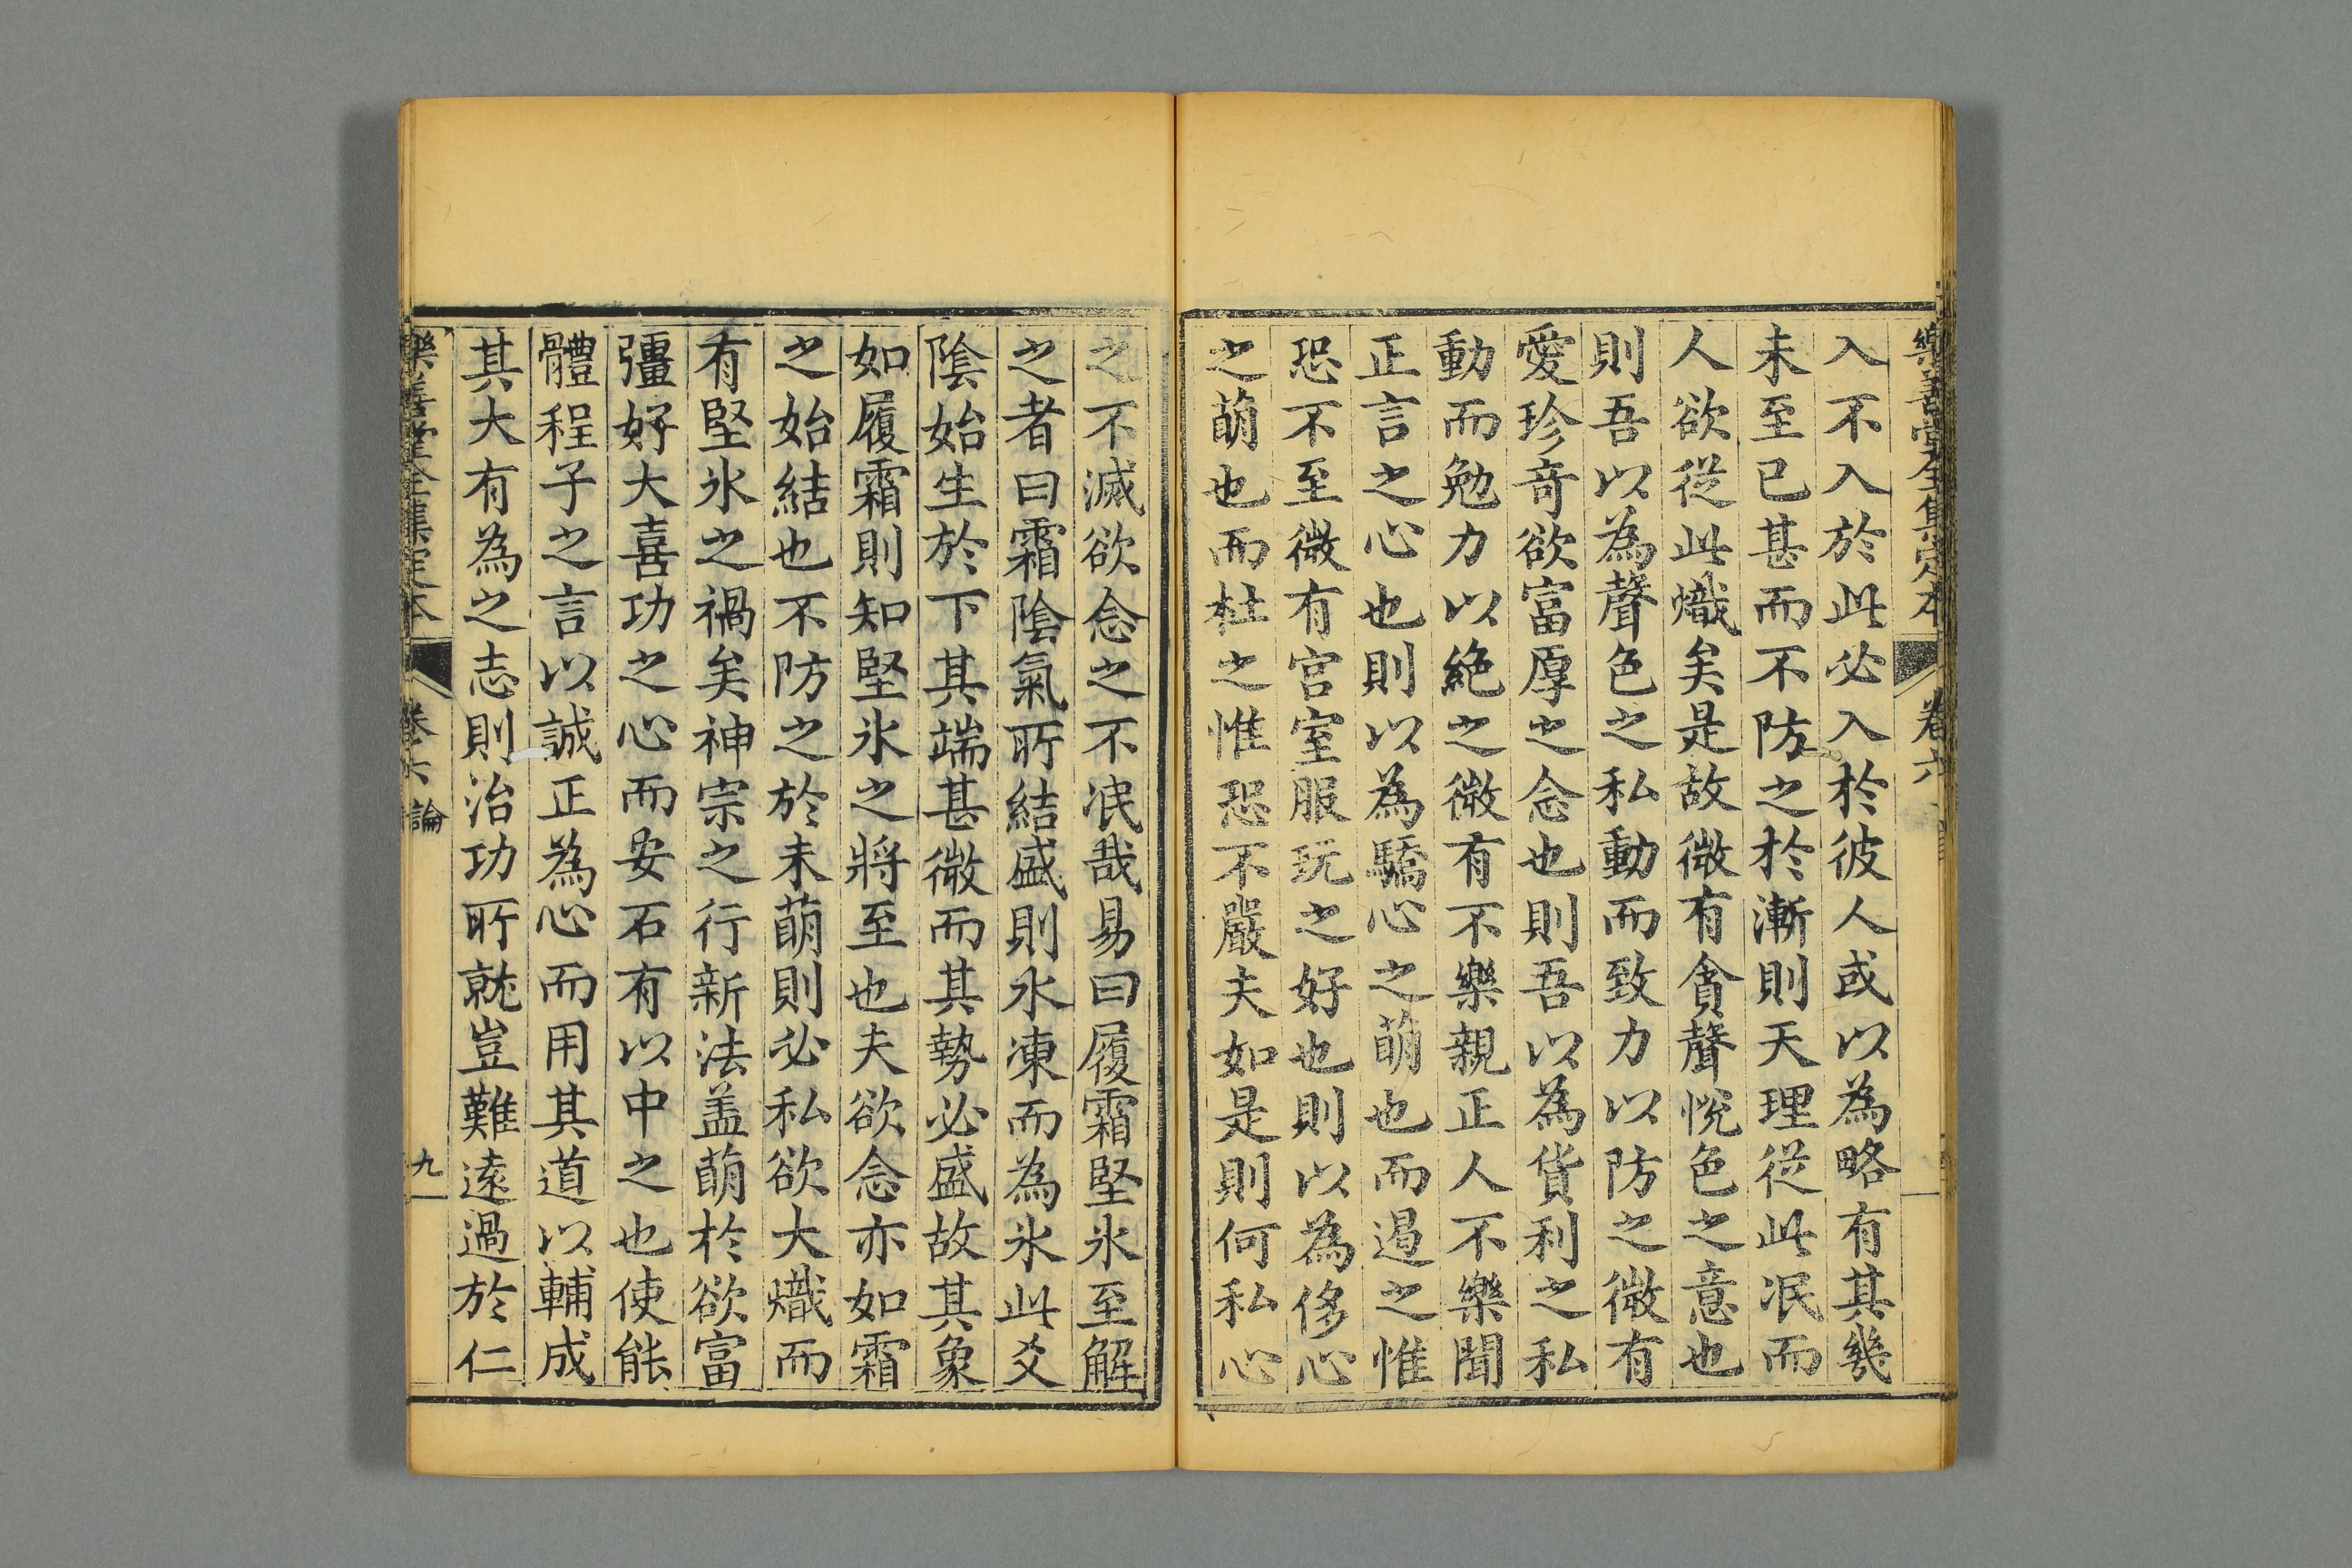 樂善堂全集定本 卷六
入不入於此必入於彼人或以為略有其幾
未至已甚而不防之於漸則天理從此泯而
人欲從此熾矣是故微有貪聲悅色之意也
則吾以為聲色之私動而致力以防之微有
愛珍奇欲富厚之念也則吾以為貨利之私
動而勉力以絶之微有不樂親正人不樂聞
正言之心也則以為驕心之萌也而遏之惟
恐不至微有宮室服玩之好也則以為侈心
之萌也而杜之惟恐不嚴夫如是則何私心
之不滅欲念之不泯哉易曰履霜堅氷至解
之者曰霜陰氣所結盛則水凍而為氷此爻
陰始生於下其端甚微而其勢必盛故其象
如履霜則知堅氷之將至也夫欲念亦如霜
之始結也不防之於未萌則必私欲大熾而
有堅氷之禍矣神宗之行新法盖萌於欲富
彊好大喜功之心而安石有以中之也使能
體程子之言以誠正為心而用其道以輔成
其大有為之志則治功所就豈難遠過於仁
樂善堂全集定本 卷六 論 九